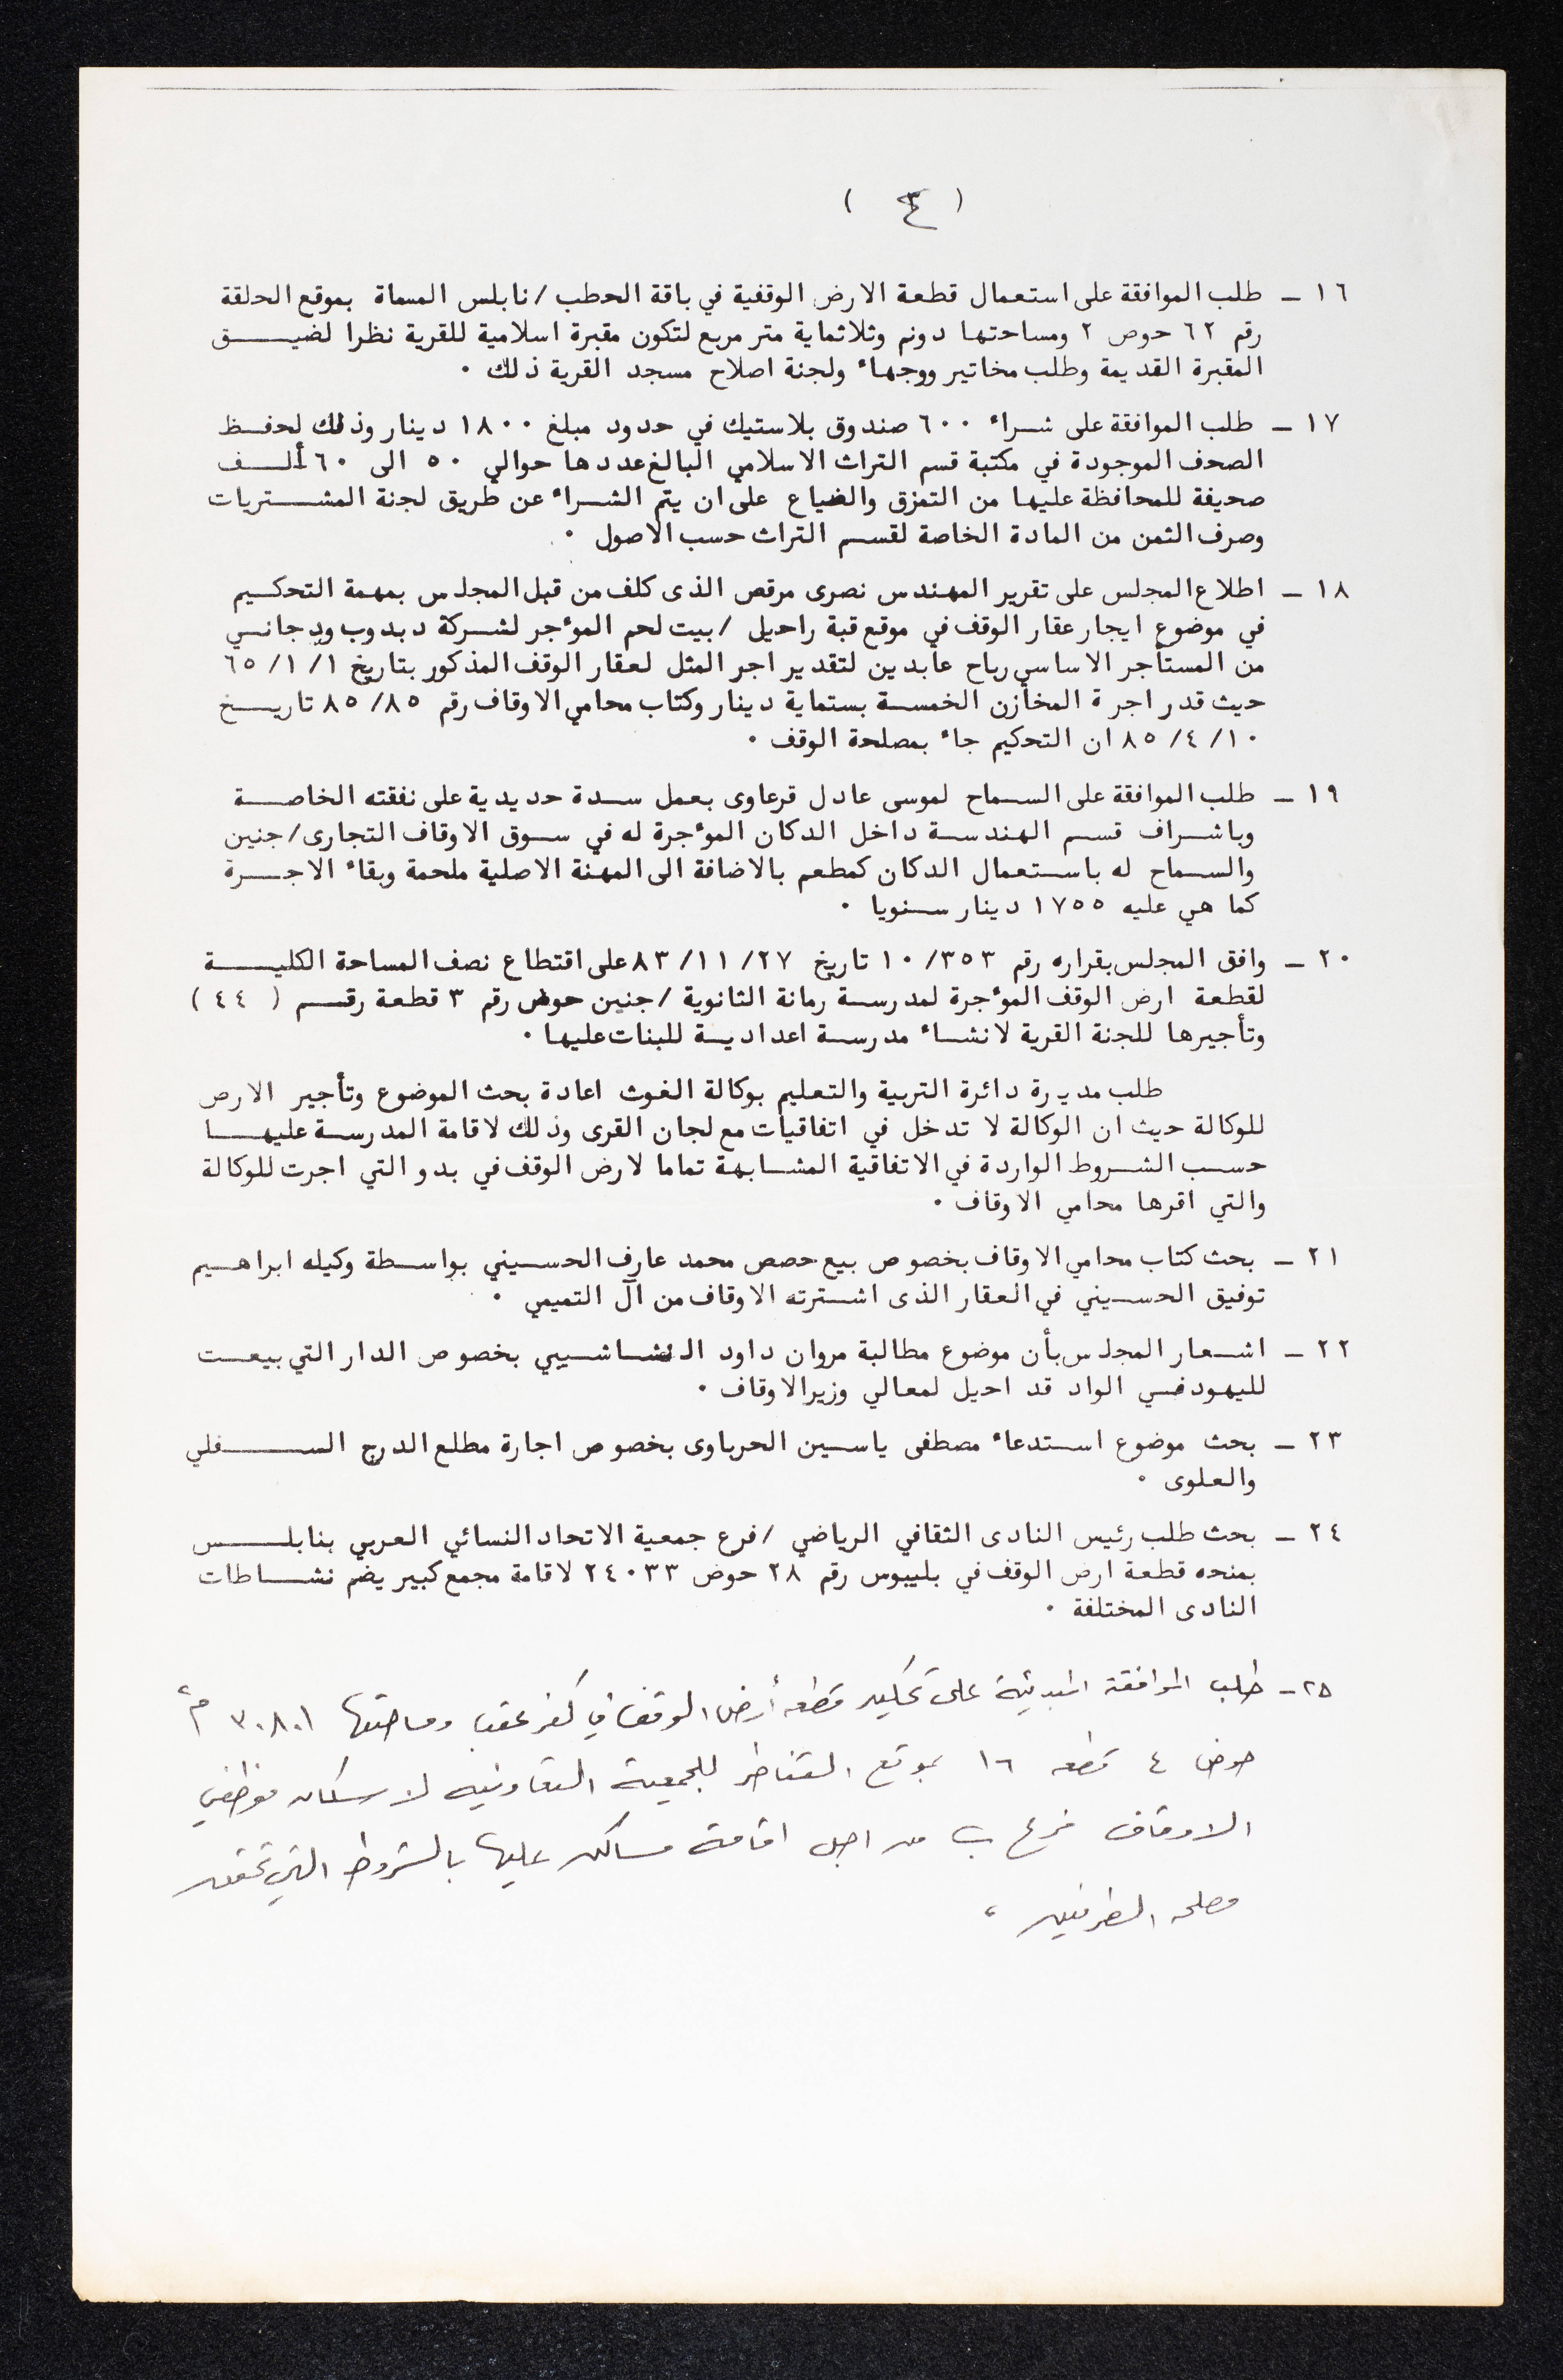 ( ٤ )
١٦ ـ طلب الموافقة على استعمال قطعة الارض الوقفية في باقة الحطب / نابلس المسماة بموقع الحلقة
رقم ٦٢ حوض ٢ ومساحتها دونم وثلاثماية متر مربع لتكون مقبرة اسلامية للقرية نظرا لضيـــق
المقبرة القديمة وطلب مخاتير ووجهاء ولجنة اصلاح مسجد القرية ذلك ٠
١٧ ـ طلب الموافقة على شراء ٦٠٠ صندوق بلاستيك في حدود مبلغ ١٨٠٠ دينار وذلك لحفـظ
الصحف الموجودة في مكتبة قسم التراث الاسلامي البالغ عددها حوالي ٥٠ الى ٦٠ ألــف
صحيفة للمحافظة عليها من التمزق والضياع على ان يتم الشراء عن طريق لجنة المشـتريات
وصرف الثمن من المادة الخاصة لقسم التراث حسب الاصول ٠
١٨ ـ اطلاع المجلس على تقرير المهندس نصرى مرقص الذى كلف من قبل المجلس بمهمة التحكـيم
في موضوع ايجار عقار الوقف في موقع قبة راحيل / بيت لحم المؤجر لشركة دبدوب ودجانـي
من المستأجر الاساسي رباح عابدين لتقدير اجر المثل لعقار الوقف المذكور بتاريخ ١ /١ /٦٥
حيث قدر اجرة المخازن الخمسـة بستماية دينار وكتاب محامي الاوقاف رقم ٨٥ /٨٥ تاريـخ
١٠ /٤ /٨٥ ان التحكيم جاء بمصلحة الوقف ٠
١٩ ـ طلب الموافقة على السـماح لموسى عادل قرعاوى بعمل سـدة حديدية على نفقته الخاصـة
وباشـراف قسـم الهندسـة داخل الدكان المؤجرة له في سـوق الاوقاف التجارى / جنين
والسـماح له باسـتعمال الدكان كمطعم بالاضافة الى المهنة الاصلية ملحمة وبقاء الاجـرة
كما هي عليه ١٧٥٥ دينار سـنويا ٠
٢٠ ـ وافق المجلس بقراره رقم ٣٥٣ /١٠ تاريخ ٢٧ /١١ /٨٣ على اقتطاع نصف المساحة الكليـة
لقطعة ارض الوقف المؤجرة لمدرسـة رمانة الثانوية / جنين حوض رقم ٣ قطعة رقـم ( ٤٤ )
وتأجيرها للجنة القرية لانشـاء مدرسـة اعداديـة للبنات عليها ٠
طلب مديرة دائرة التربية والتعليم بوكالة الغوث اعادة بحث الموضوع وتأجير الارض
للوكالة حيث ان الوكالة لا تدخل في اتفاقيات مع لجان القرى وذلك لاقامة المدرسـة عليهـا
حسـب الشـروط الواردة في الاتفاقية المشـابهة تماما لارض الوقف في بدو التي اجرت للوكالة
والتي اقرها محامي الاوقاف ٠
٢١ ـ بحث كتاب محامي الاوقاف بخصوص بيع حصص محمد عارف الحسـيني بواسـطة وكيله ابراهـيم
توفيق الحسـيني في العقار الذى اشـترته الاوقاف من آل التميمي ٠
٢٢ ـ اشـعار المجلس بأن موضوع مطالبة مروان داود النشـاشـيبي بخصوص الدار التي بيعـت
لليهود فـي الواد قد احيل لمعالي وزير الاوقاف ٠
٢٣ ـ بحث موضوع اسـتدعاء مصطفى ياسـين الحرباوى بخصوص اجارة مطلع الدرج الســفلي
والعلوى ٠
٢٤ ـ بحث طلب رئيس النادى الثقافي الرياضي / فرع جمعية الاتحاد النسائي العربي بنابلــس
بمنحه قطعة ارض الوقف في بليبوس رقم ٢٨ حوض ٢٤٠٣٣ لاقامة مجمع كبير يضم نشـاطات
النادى المختلفة ٠
٢٥ ـ طلب الموافقة المبدئية على تحكير قطعه أرض الوقف في كفر عقب ومساحتها ٣٠٨٠١ م٢
حوض ٤ قطعه ١٦ بموقع القناطر للجمعية التعاونيه لاسكان موظفي
الاوقاف فرع ب من اجل اقامة مساكن عليها بالشروط التي تحقق
مصلحه الطرفين ٠